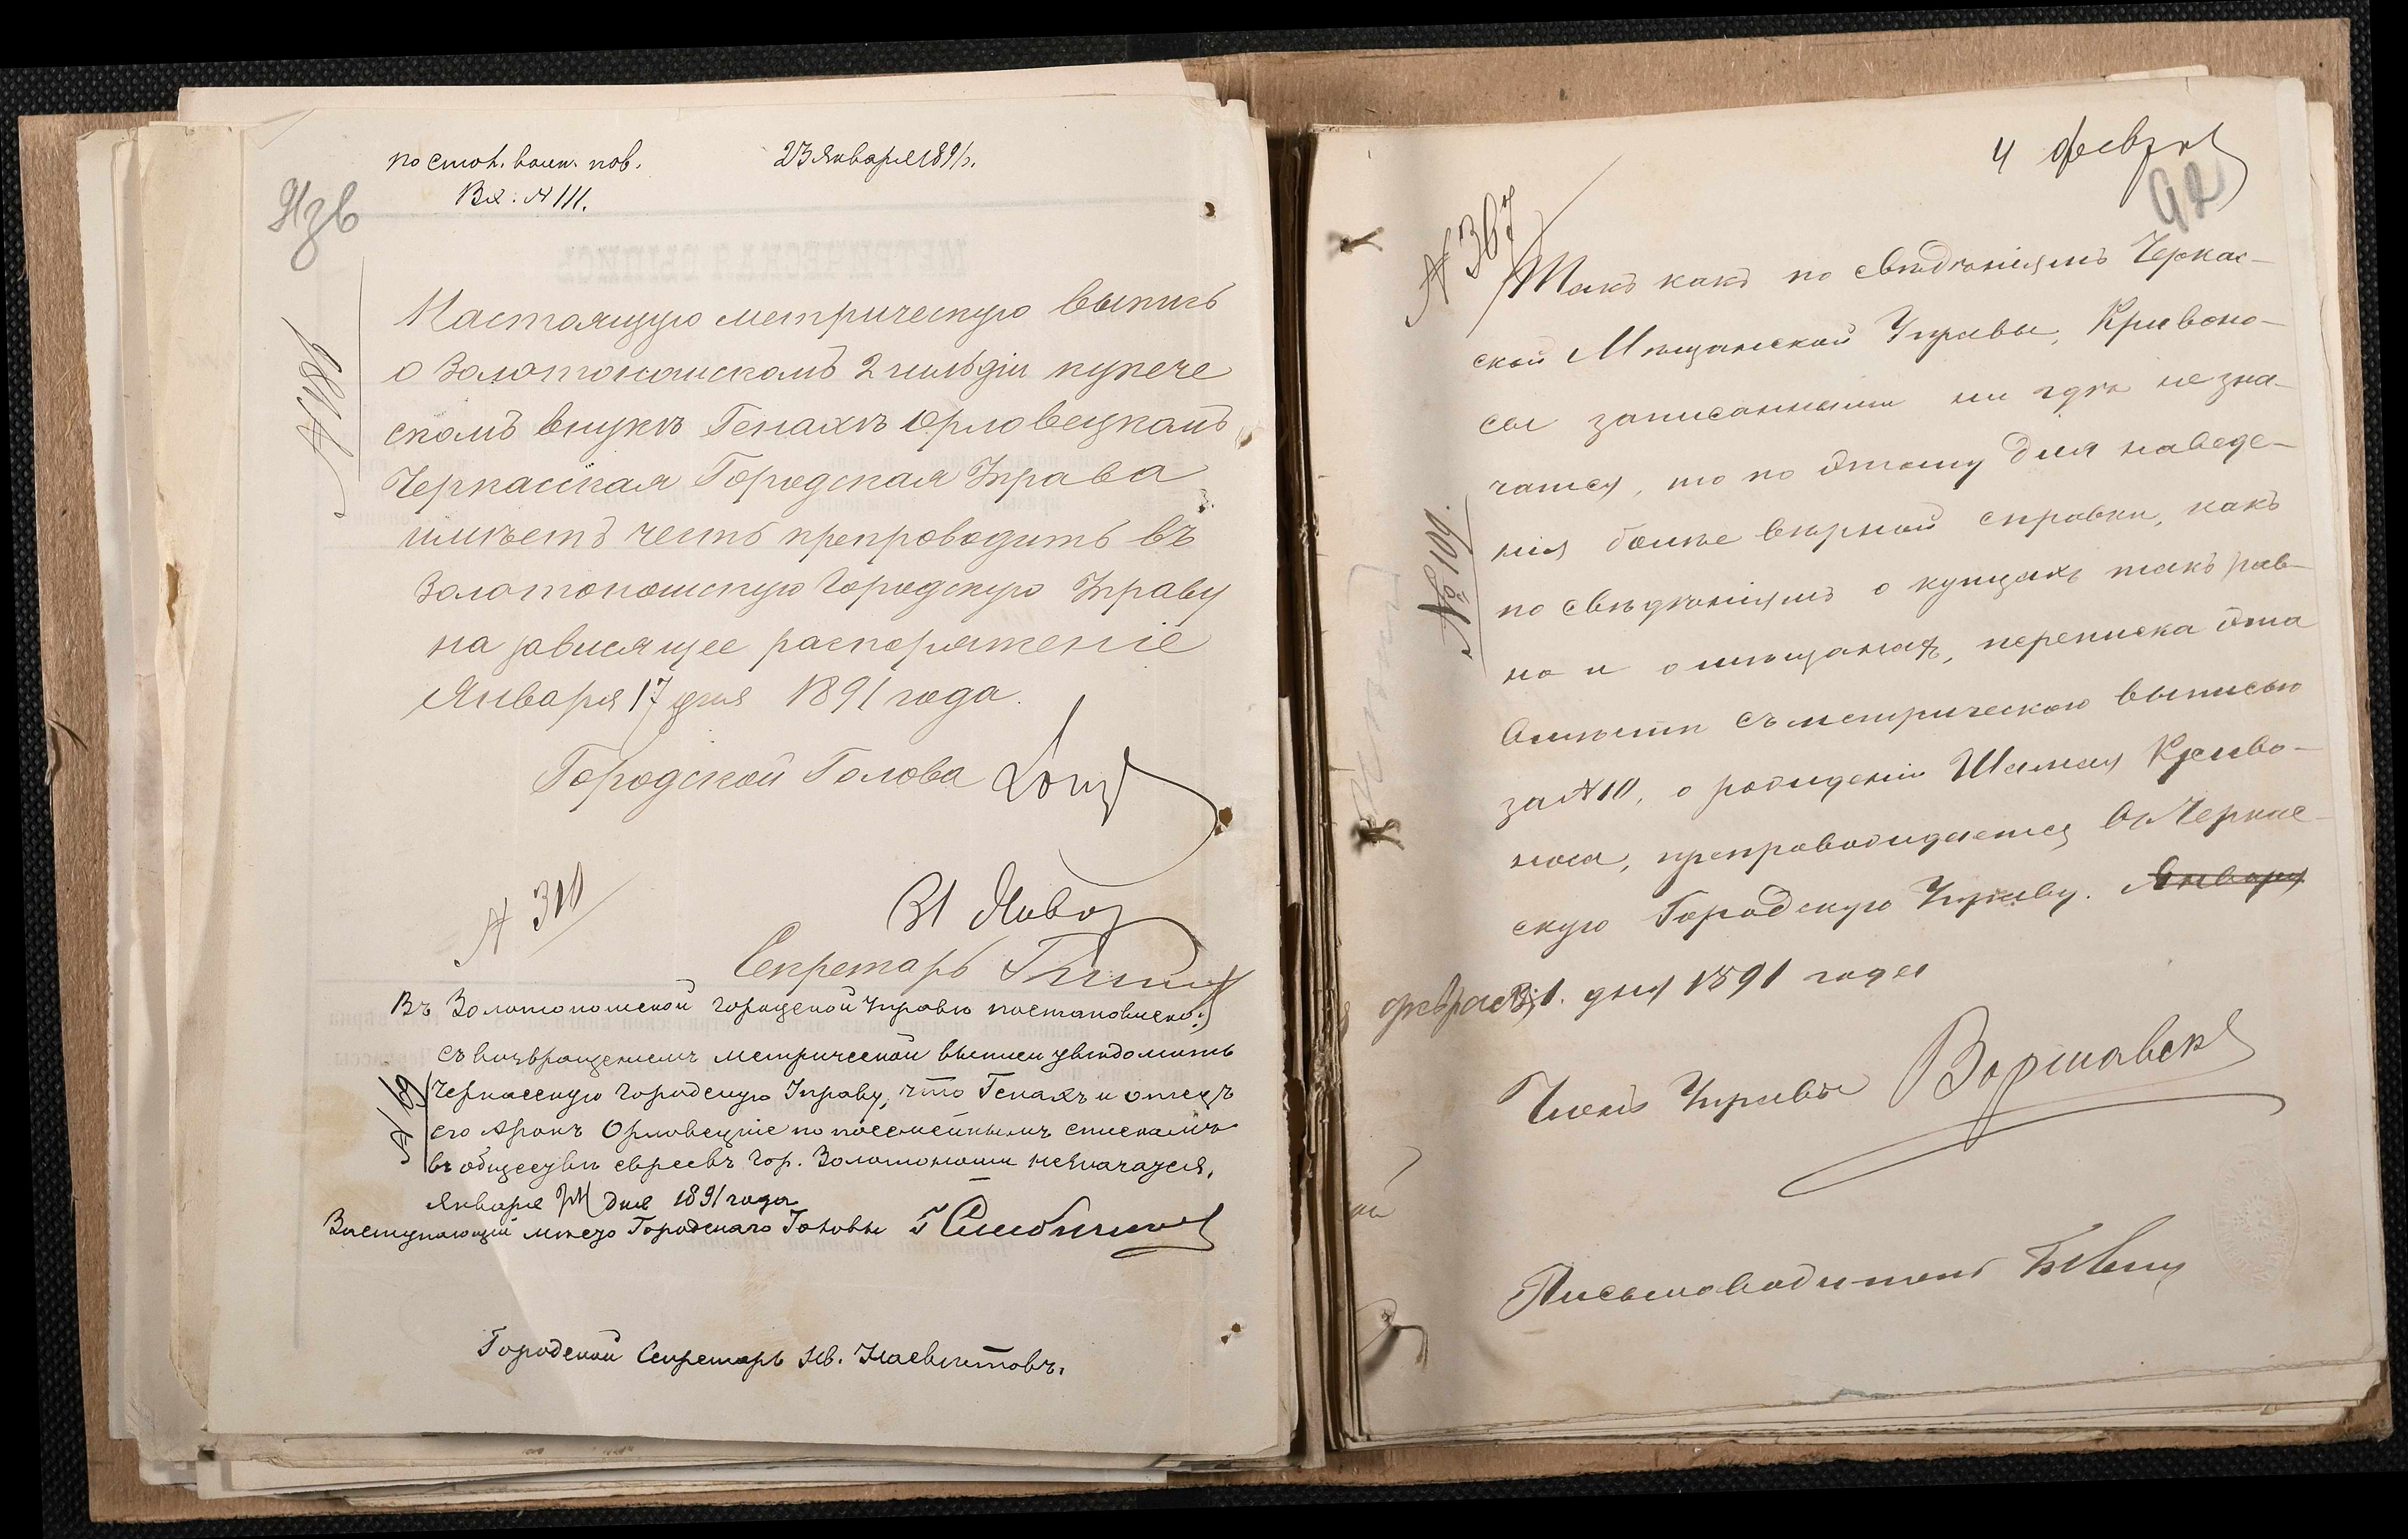 по столу воин. пов.
23 Января 1891 г.
Вх: № 111.
Изв
№ 186
Настоящую метрическую выпись
о Золотоношскомъ 2 гильдіи купече
скомъ внукѣ Генахѣ Орловецкомъ
Черкасская Городская Управа
имѣетъ честь препроводить въ
Золотоношскую Городскую Управу
на зависящее распоряженіе
Января 17 дня 1891 года.
Городской Голова
№ 311
31 Январ
Секретарь
Въ Золотоношской городской Управѣ постановлено:
съ возвращеніемъ метрической выписи увѣдомить
Черкасскую городскую Управу, что Генахъ и отецъ
его Аронъ Орловецкіе по посемейнымъ спискамъ
въ обществѣ евреевъ гор. Золотоноши незначатся.
№ 69
Января дня 1891 года
Заступающій мѣсто Городскаго Головы
Городской Секретарь Ив.
4 февр
92
№ 367
Такъ какъ по свѣдѣніямъ Черкас-
ской Мѣщанской Управы, Кривоно-
сы записанными ни гдѣ не зна-
чатся, то по этому для наведе-
нія болѣе вѣрной справки, какъ
№ 109.
по свѣдѣніямъ о купцахъ такъ рав-
но и о мѣщанахъ, переписка эта
вмѣстѣ съ метрическою выписью
за № 10, о рожденіи Шамая Криво-
носа, препровождается въ Черкас-
скую Городскую Управу. Января
февраля 1. дня 1891 года
Членъ Управы Варшавск
Письмоводитель